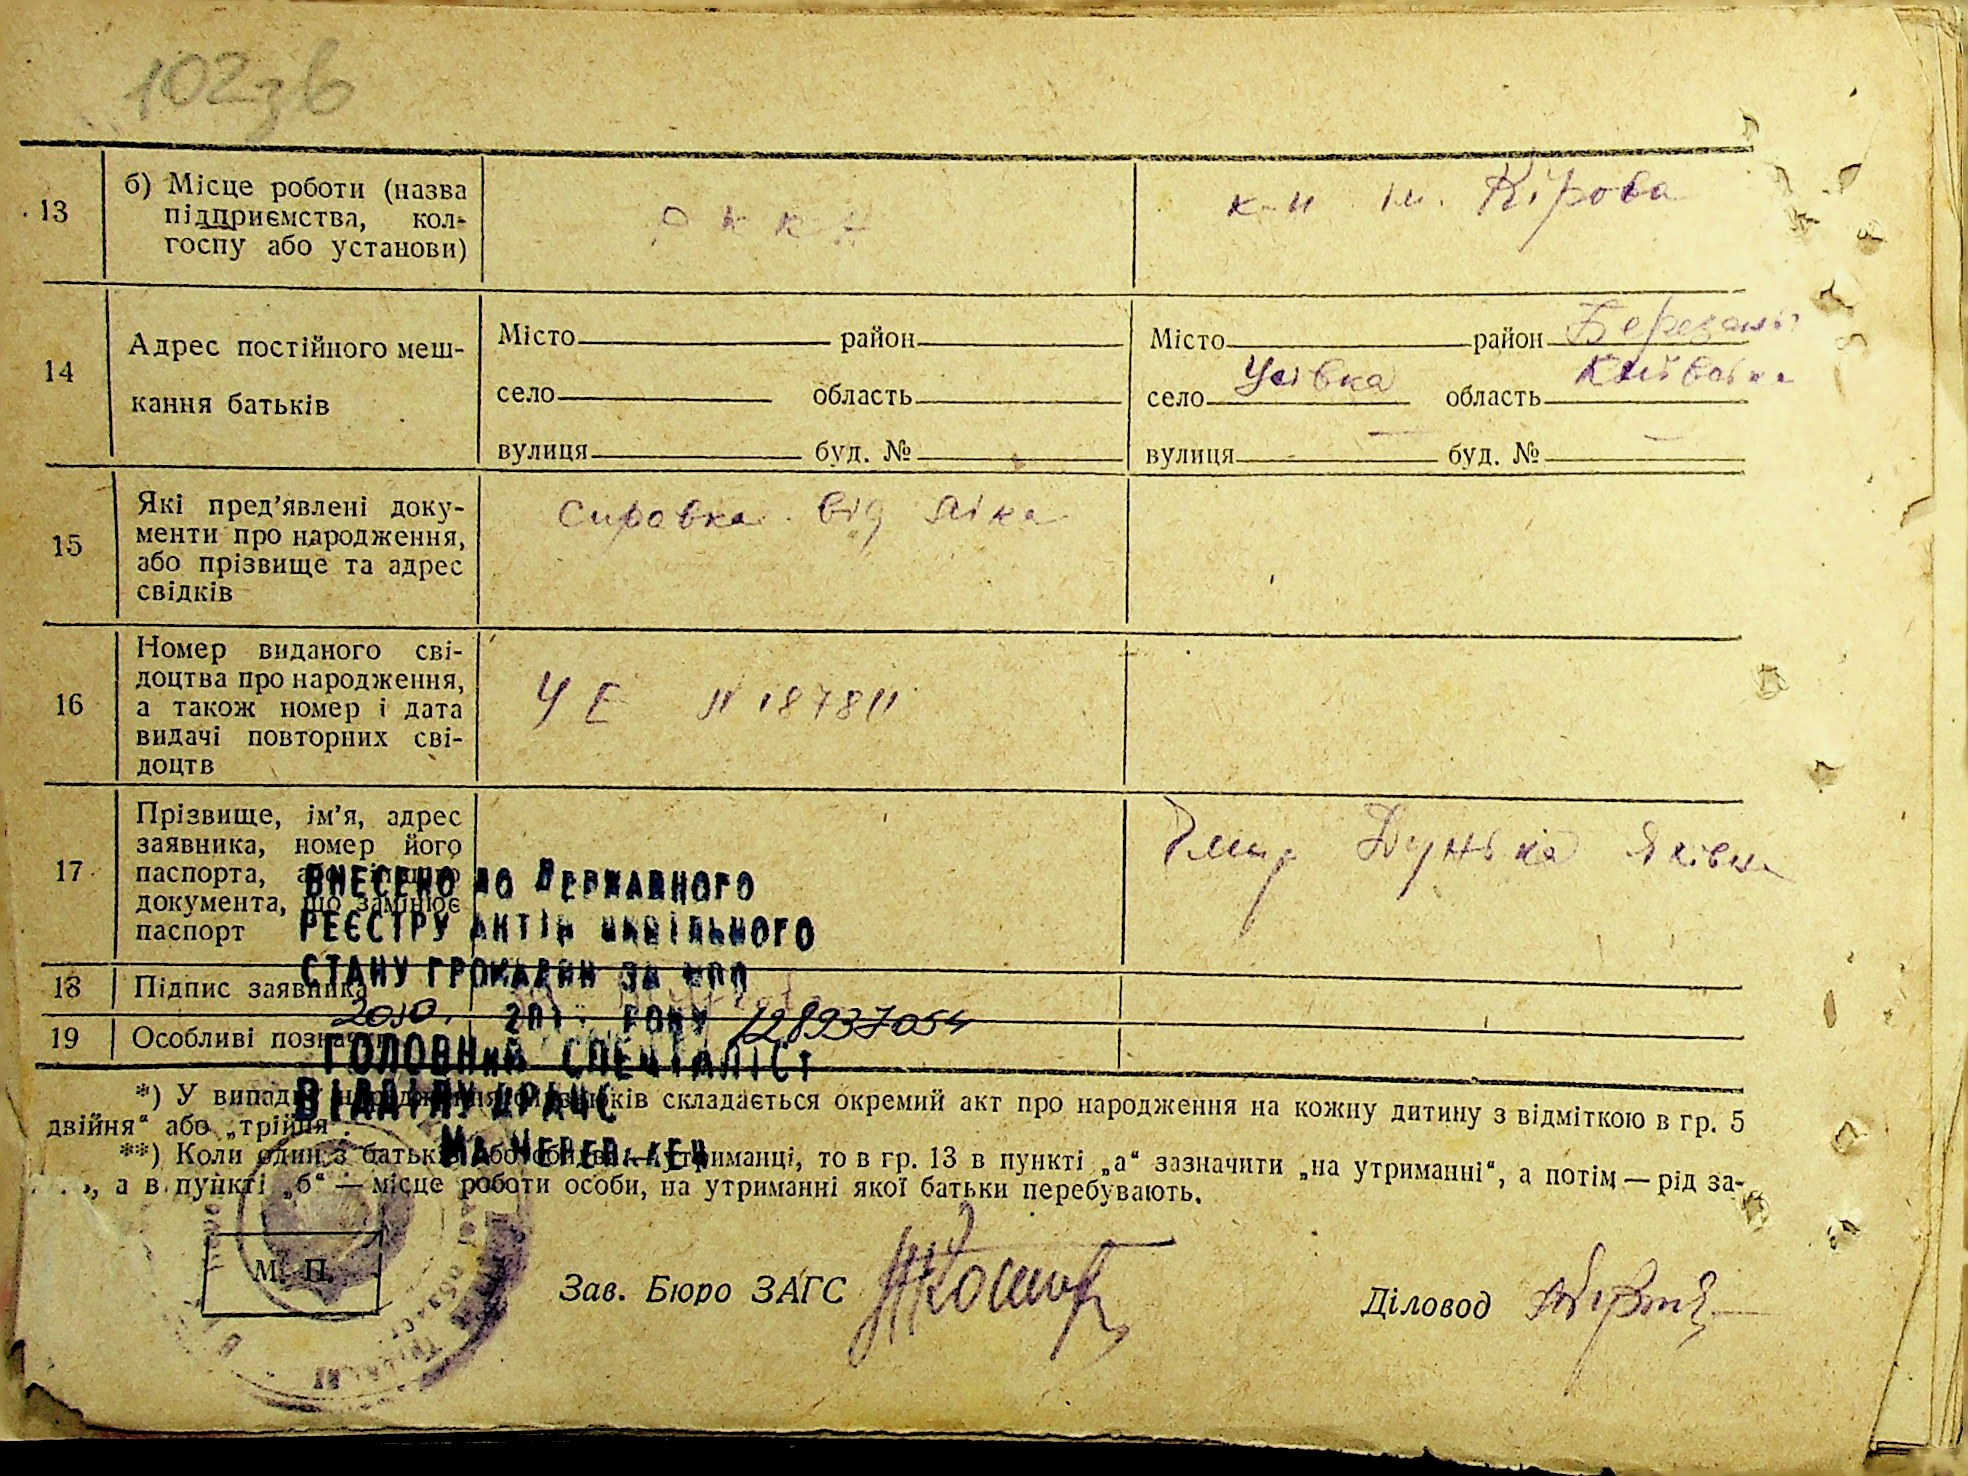 102зв
13
б) Місце роботи (назва
підприємства, кол-
госпу або установи)
к-п ім. Кірова
14
Адрес постійного меш-
кання батьків
Місто район
село область
вулиця буд. №
Місто район Березань
село Усівка область Київська
вулиця — буд. № —
15
Які пред'явлені доку-
менти про народження,
або прізвище та адрес
свідків
Справка від ліка
16
Номер виданого сві-
доцтва про народження,
а також номер і дата
видачі повторних сві-
доцтв
УЕ N 187811
17
Прізвище, ім'я, адрес
заявника, номер його
паспорта, або іншого
документа, що замінює
паспорт
Дунька Яківна
ВНЕСЕНО ДО ДЕРЖАВНОГО
РЕЄСТРУ АКТІВ ЦИВІЛЬНОГО
СТАНУ ГРОМАДЯН ЗА
18 Підпис заявника
2010. 201 РОКУ 128937054
19 Особливі познач
ГОЛОВНИЙ СПЕЦІАЛІСТ
ВІДДІЛУ ДРАЦС
*) У випадку народження близнюків складається окремий акт про народження на кожну дитину з відміткою в гр. 5
двійня“ або „трійня“.
**) Коли один з батьків або обидва на утриманці, то в гр. 13 в пункті „а“ зазначити „на утриманні“, а потім — рід за-
, а в пункті „б“ — місце роботи особи, на утриманні якої батьки перебувають.
М. П.
Зав. Бюро ЗАГС
Діловод